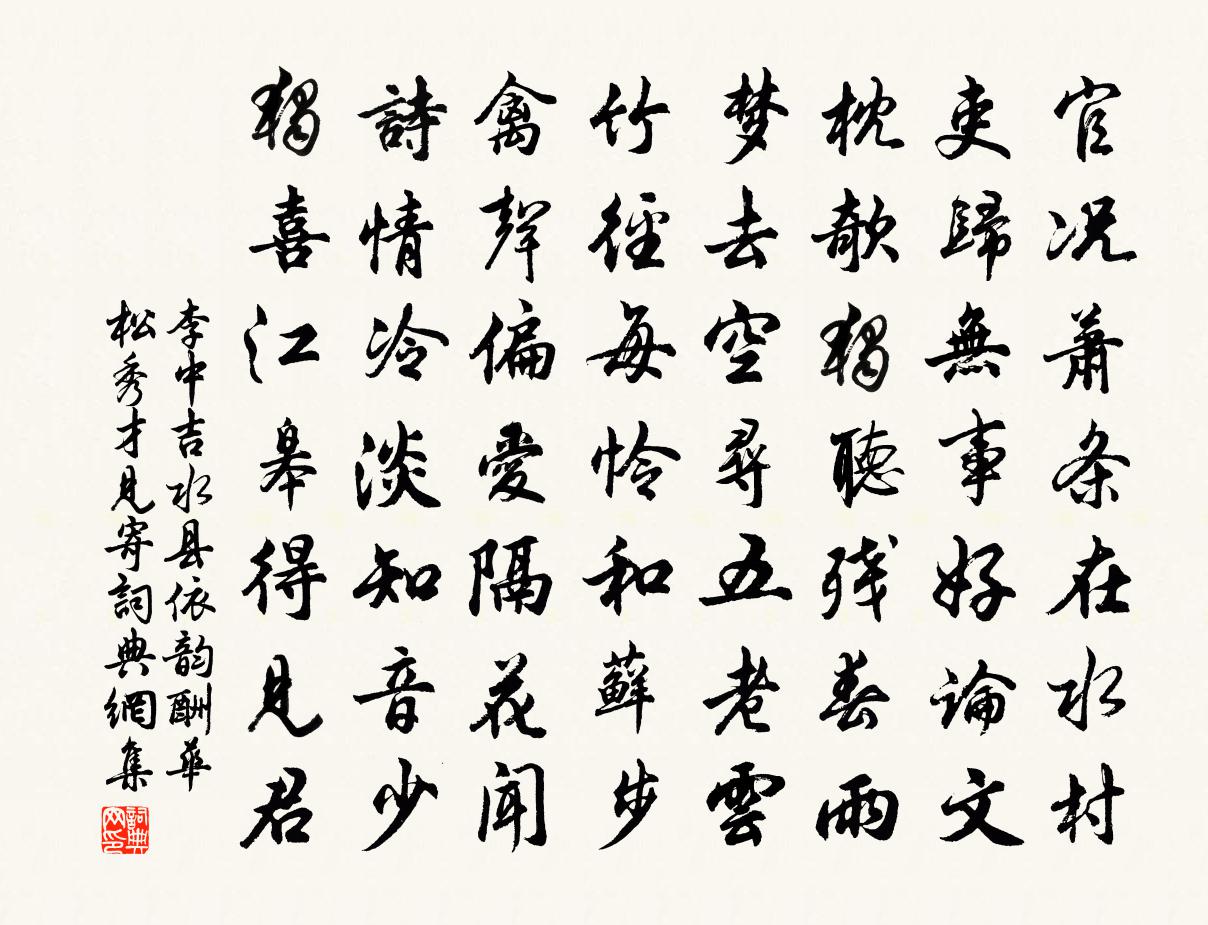 官况萧条在水村
吏歸無事好論文
枕欹獨聽残春雨
梦去空尋五老雲
竹徑每怜和蘚步
禽聲偏愛隔花聞
詩情冷淡知音少
獨喜江皋得見君
李中吉水县依韵酬華
松秀才見寄詞典網集
詞典
网印